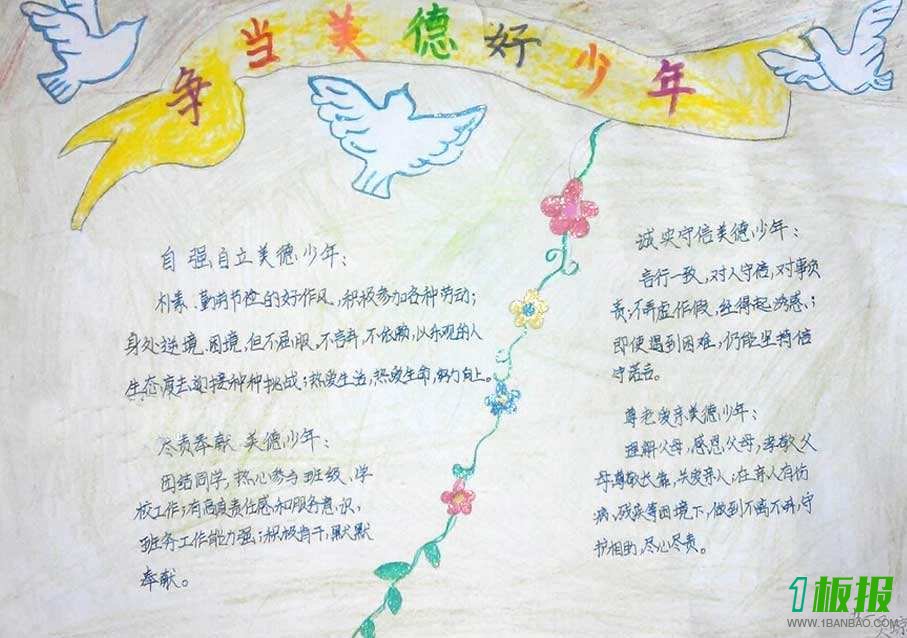 争当美德好少年
自强自立美德少年：
朴素、勤劳节俭的好作风，积极参加各种劳动；
身处逆境、困境，但不屈服，不言弃，不依赖，以乐观的人
生态度去迎接种种挑战；热爱生活，热爱生命，努力向上。
尽责奉献美德少年：
团结同学，热心参与班级、学
校工作；有高度责任感和服务意识，
班务工作能力强；积极肯干，默默
奉献。
诚实守信美德少年：
言行一致，对人守信，对事负
责；不弄虚作假，经得起诱惑；
即使遇到困难，仍能坚持信
守诺言。
尊老爱亲美德少年：
理解父母，感恩父母，孝敬父
母，尊敬长辈，关爱亲人；在亲人有伤
病、残疾等困境下，做到不离不弃，守
护相助，尽心尽责。
1板报
WWW.1BANBAO.COM